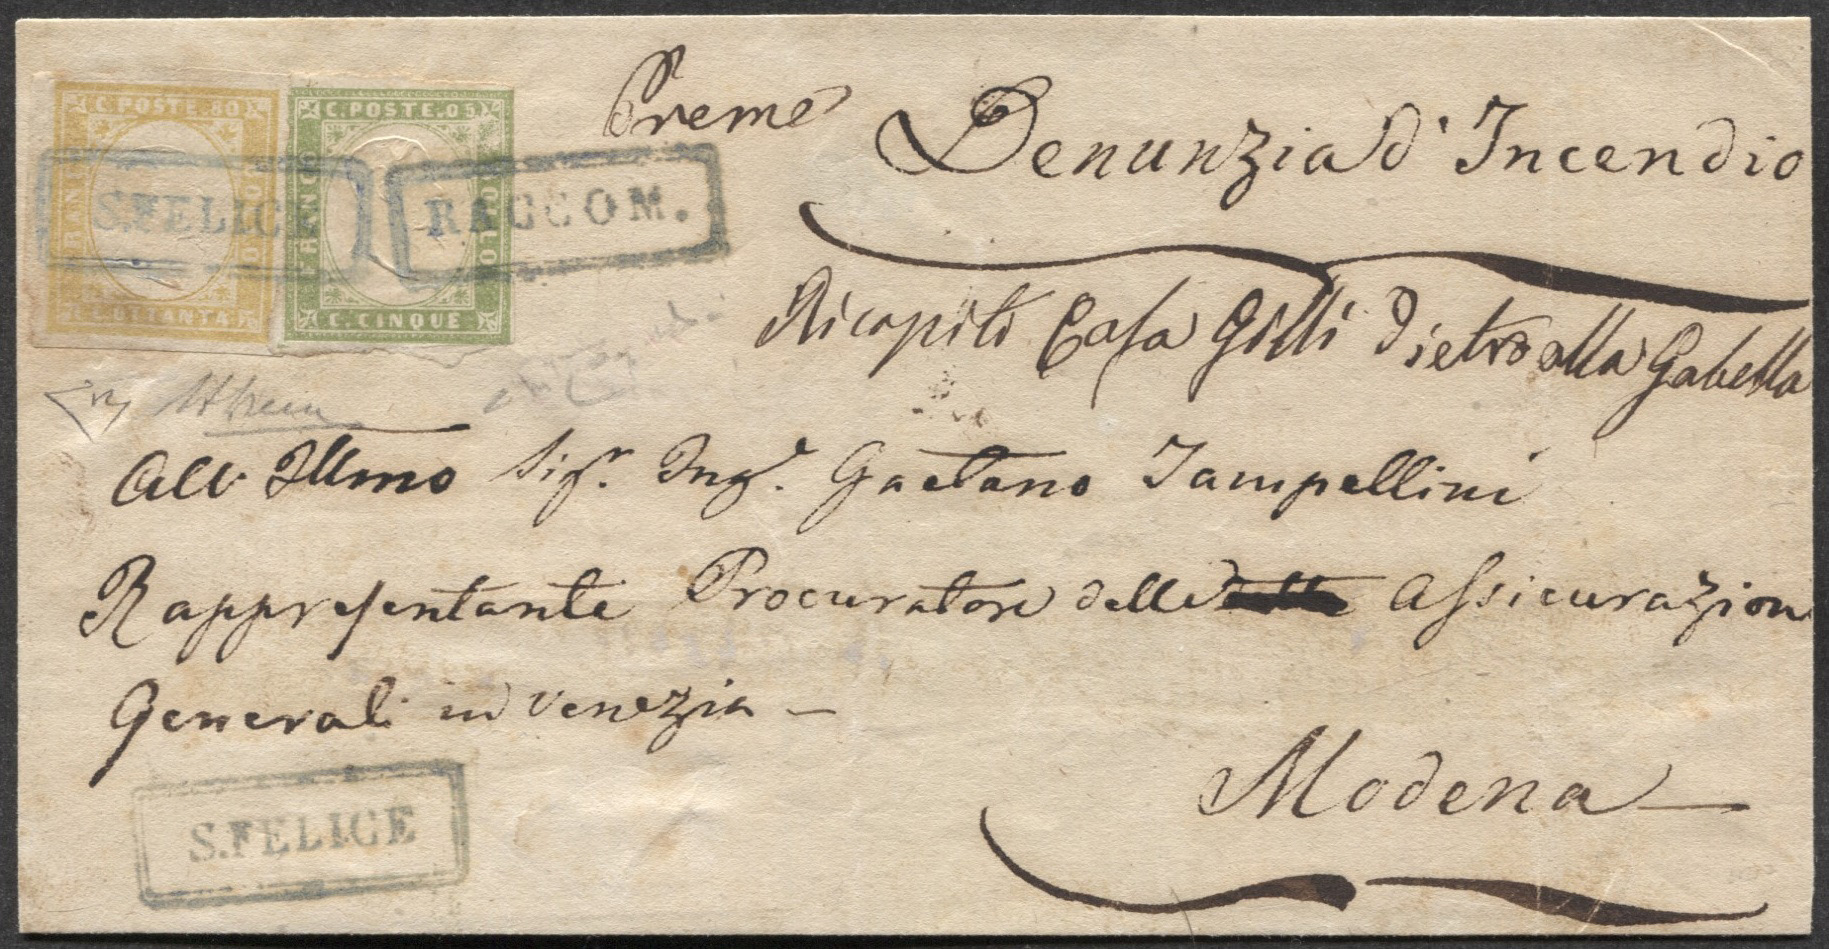 C. POSTE. 80
FRANCO BOLLO
C. OTTANTA
C. POSTE. 05
FRANCO BOLLO
C. CINQUE
S. FELICE
RACCOM.
Preme
Denunzia d'Incendio
Ricapito Casa Gilli Dietro alla Gabella
All' Illmo Sigr. Ingr. Gaetano Tampellini
Rappresentante Procuratore delle Assicurazion
Generali in Venezia –
Modena
S. FELICE